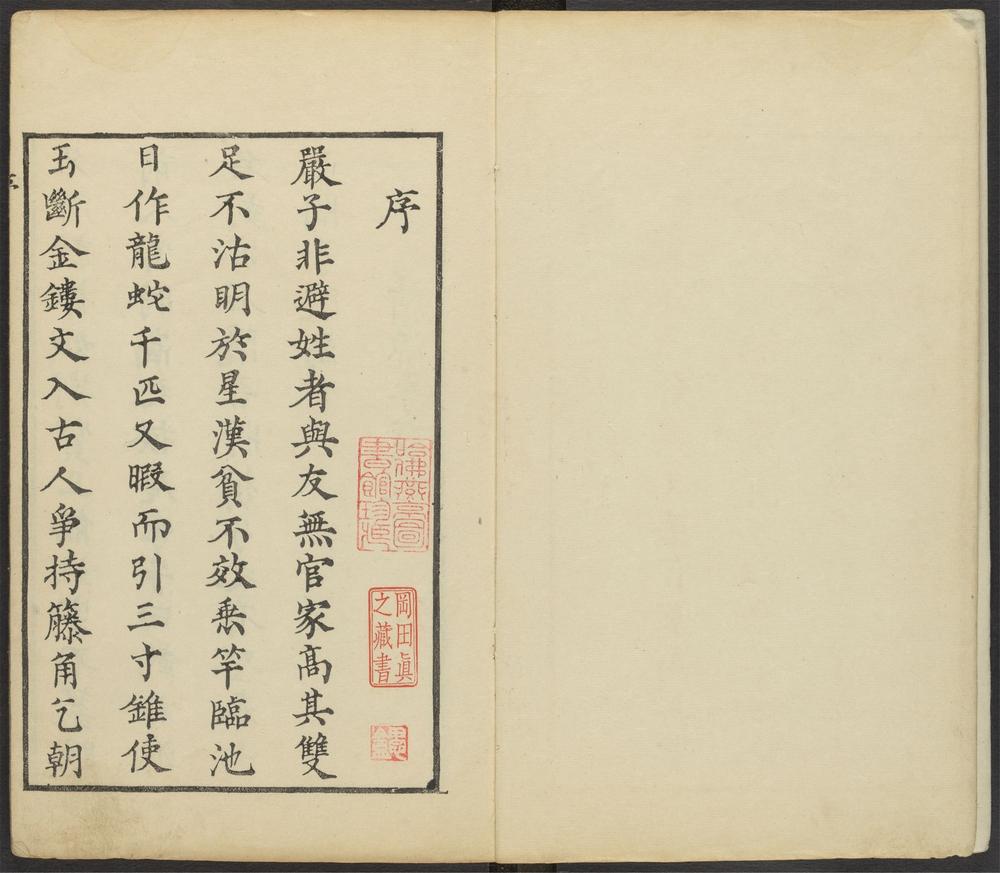 序
嚴子非避姓者與友無官家高其雙
足不沾明於星漢貧不效垂竿臨池
日作龍蛇千匹又暇而引三寸錐使
玉斷金鏤文入古人爭持籐角乞朝
哈佛燕京圖
書館珍藏
岡田眞
之藏書